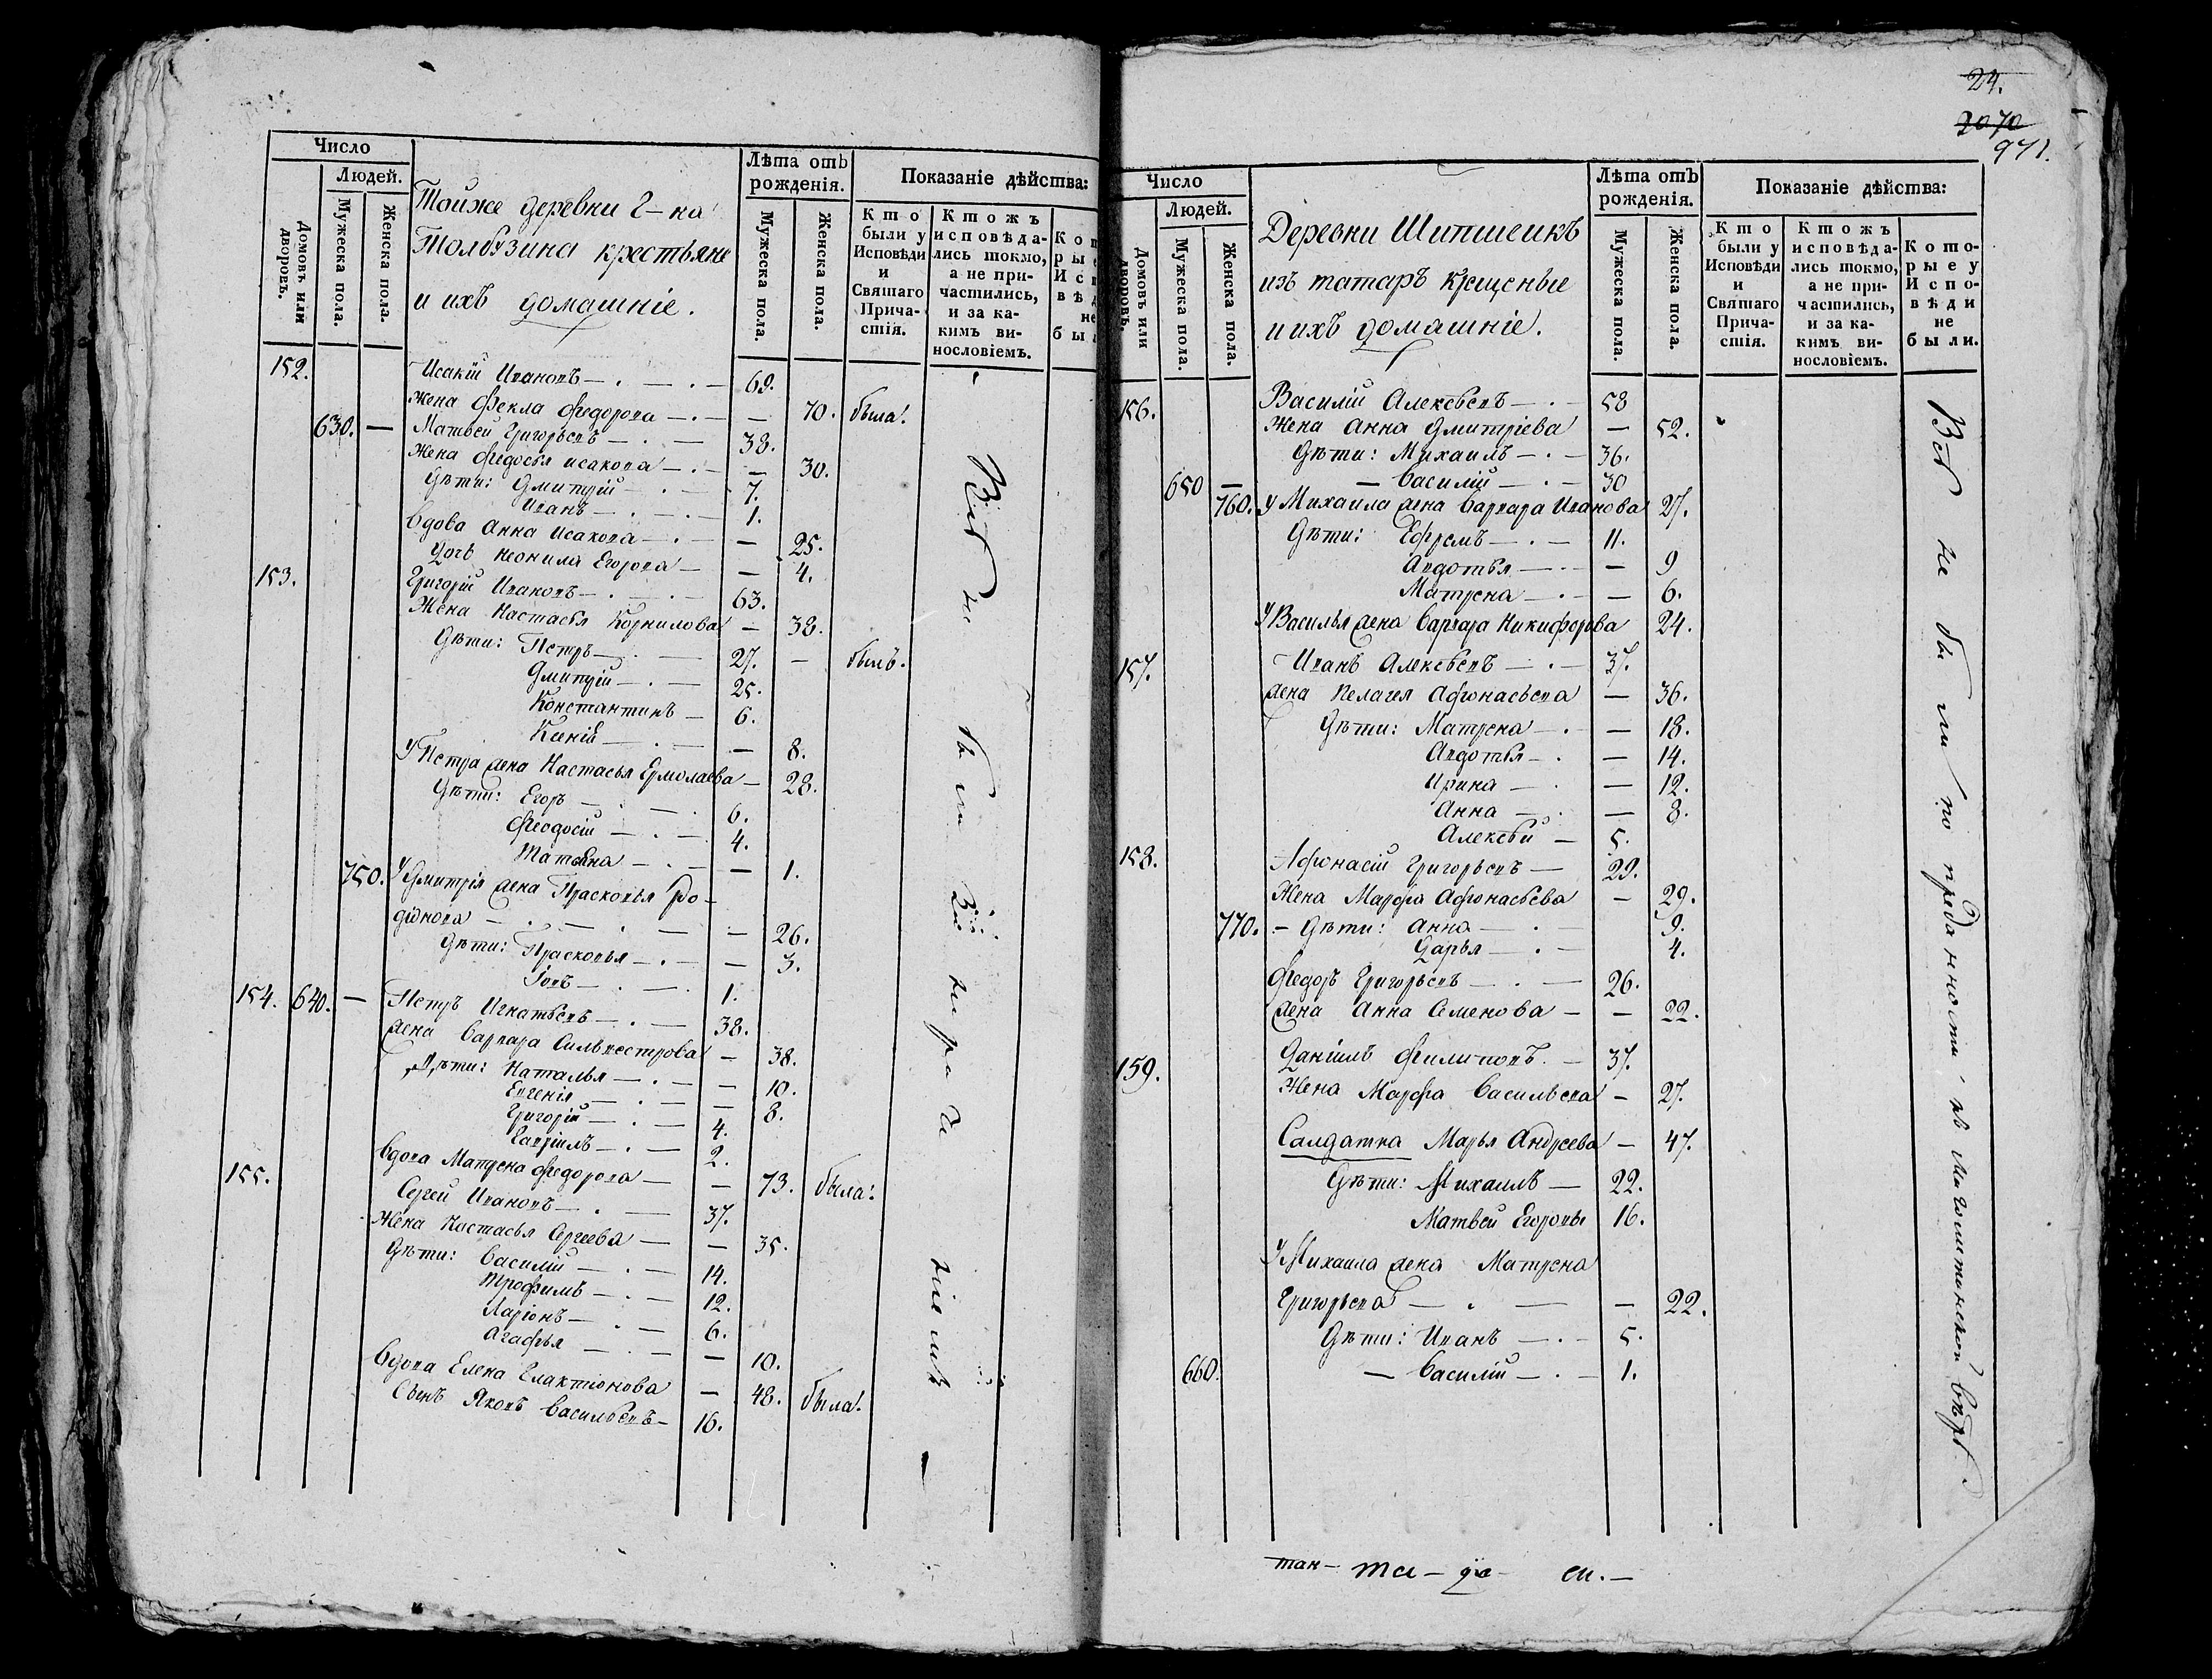 Число
Людей.
Домовъ или дворовъ.
Мужеска пола.
Женска пола.
Тойже деревни г-на
Толбузина крестьяне
и ихъ домашніе.
Лѣта отъ рожденія.
Мужеска пола.
Женска пола.
Показаніе дѣйства:
Кто были у Исповѣди и Святаго Причастія.
Ктожъ исповѣдались токмо, а не причастились, и за какимъ винословіемъ.
152. Исакій Ивановъ 69.
жена Фекла Федорова — 70. была.
630. — Матвей Григорьевъ 38.
Жена Федосья Исакова — 30.
Дѣти: Дмитрій 7.
Иванъ 1.
Вдова Анна Исакова — 25.
Дочь Неонила Егорова — 4.
153. Григорій Ивановъ 63.
Жена Настасья Корнилова — 38.
Дѣти: Петръ 27. — былъ.
Дмитрій 25.
Константинъ 6.
Ксенія — 8.
У Петра жена Настасья Ермолаева — 28.
Дѣти: Егоръ 6.
Феодосій 4.
Татьяна — 1.
750. У Дмитрія жена Прасковья Ро-
діонова — 26.
Дѣти: Прасковья — 3.
1.
154. 640. — Петръ Игнатьевъ 38.
жена Варвара Сильвестрова — 38.
Дѣти: Наталья — 10.
Евгенія — 8.
Григорій 4.
Гавріилъ 2.
Вдова Матрена Федорова — 73. была.
155. Сергей Ивановъ 37.
Жена Настасья Сергеева — 35.
Дѣти: Василій 14.
Трофимъ 12.
Ларіонъ 6.
Агафья — 10.
Вдова Елена Галактіонова — 48. была.
Сынъ Яковъ Васильевъ 16.
Всѣ не были за нераченіемъ
24.
2070
971.
Число
Людей.
Домовъ или дворовъ.
Мужеска пола.
Женска пола.
Деревни Шипшеикъ
изъ татаръ крещеные
и ихъ домашніе.
Лѣта отъ рожденія.
Мужеска пола.
Женска пола.
Показаніе дѣйства:
Кто были у Исповѣди и Святаго Причастія.
Ктожъ исповѣдались токмо, а не причастились, и за какимъ винословіемъ.
Которые у Исповѣди не были.
156. Василій Алексѣевъ 58
Жена Анна Дмитріева — 52.
Дѣти: Михаилъ 36.
650 — Василій 30
760. У Михаила жена Варвара Иванова 27.
Дѣти: Ефремъ 11.
Авдотья — 9
Матрена — 6.
У Василья жена Варвара Никифорова 24.
157. Иванъ Алексѣевъ 37.
жена Пелагея Афонасьева — 36.
Дѣти: Матрена — 18.
Авдотья — 14.
Ирина — 12.
Анна — 8.
Алексѣй 5.
158. Афонасій Григорьевъ 29.
Жена Марфа Афонасьева — 29.
770. — Дѣти: Анна 9.
Дарья 4.
Федоръ Григорьевъ 26.
жена Анна Семенова — 22.
159. Даніилъ Филиповъ 37.
Жена Марфа Васильева — 27.
Салдатка Марья Андреева — 47.
Дѣти: Михаилъ 22.
Матвей Егоровы 16.
У Михаила жена Матрена
Григорьева — 22.
Дѣти: Иванъ 5.
660. — Василій 1.
Всѣ не были по преданности къ Магометанской вѣрѣ